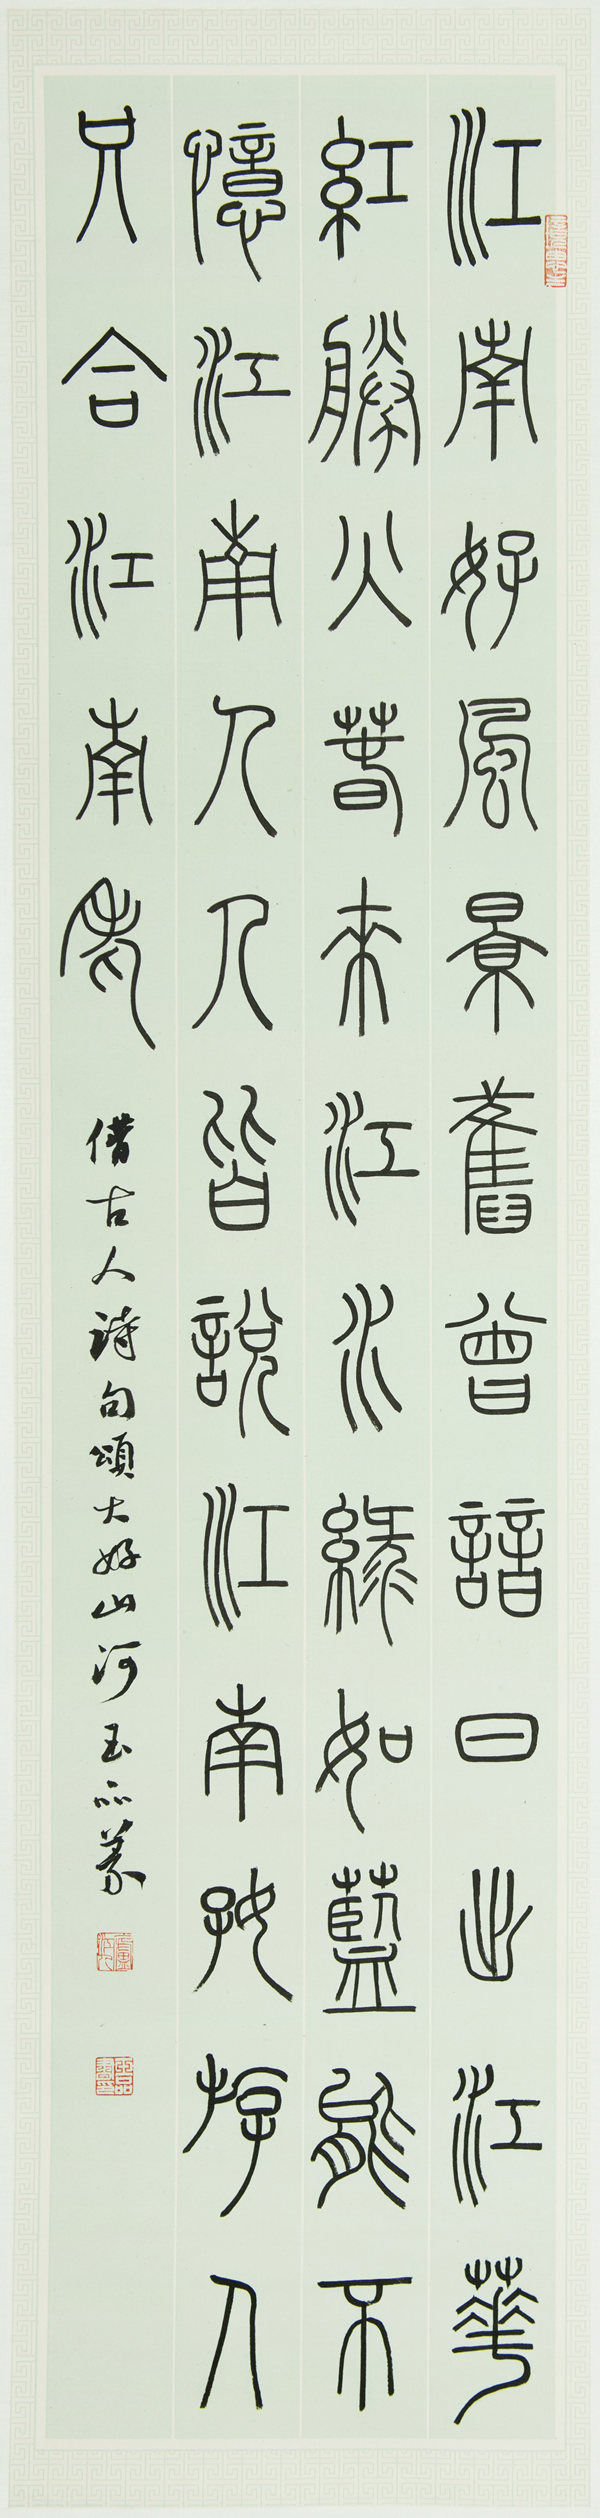 江南好風景舊曾諳日出江華
紅勝火春來江水綠如藍能不
憶江南人人皆說江南好游人
只合江南老
借古人詩句頌大好山河玉品篆